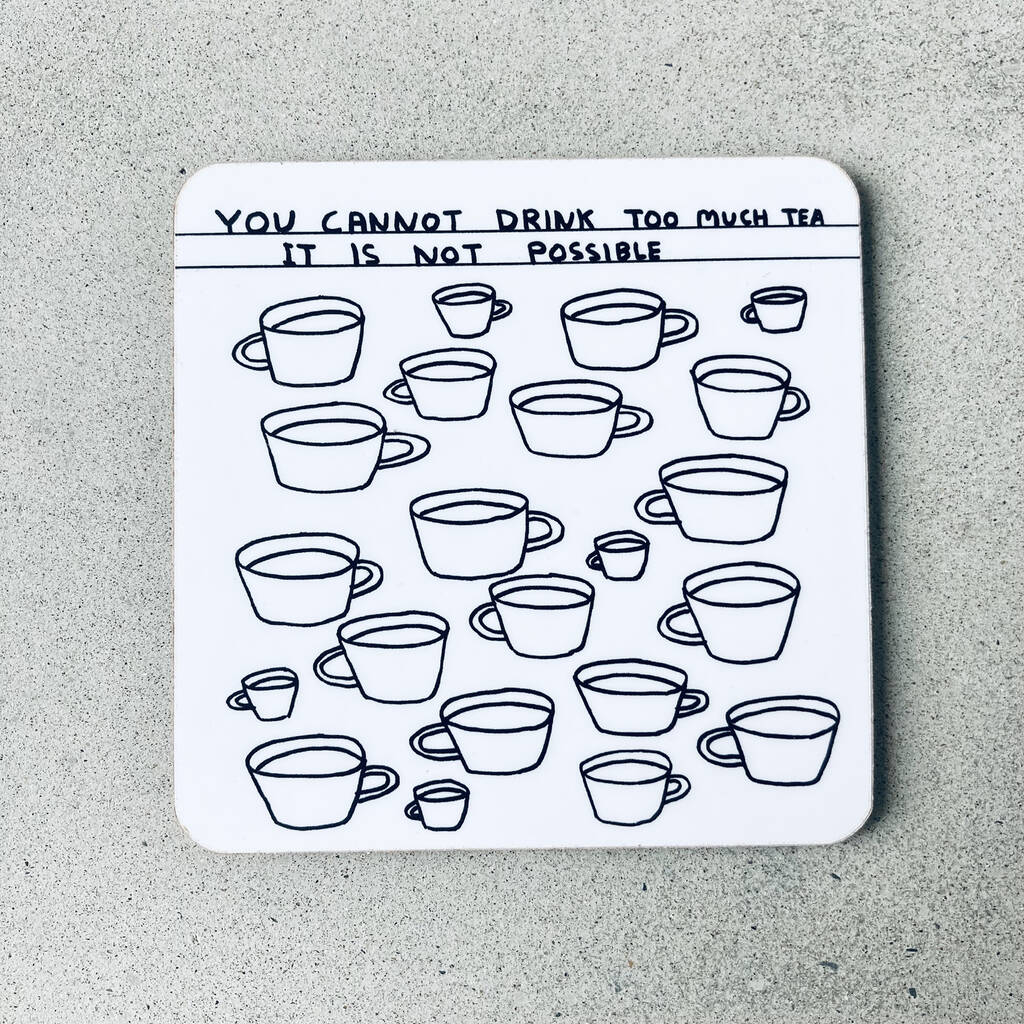 YOU CANNOT DRINK TOO MUCH TEA
IT IS NOT POSSIBLE